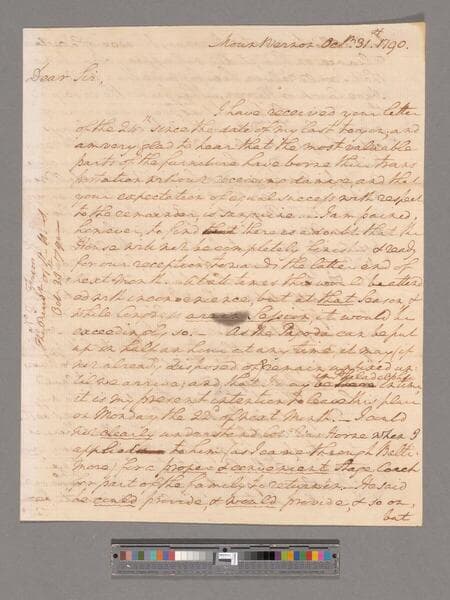 Mount Vernon Octr. 31st. 1790.
Dear Sir,
I have received your letter
of the 24th. since the date of my last to you, and
am very glad to hear that the most valuable
parts of the furniture have borne their trans
portation without receiving damage, and that
your expectation of equal success with respect
to the remainder is sanguine. I am pained,
however, to find that there is a doubt that the
House will not be completely finished & ready
for our reception towards the latter end of
next Month. At all times this would be attended
with inconvenience, but at that season &
while Congress are in Session it would be
exceedingly so. — As the Pagoda can be put
up in half an hour at any time it may, if
not already disposed of remain
til we arrive; and that may be
in Philadelphia
it is my present intention to leave this place
on Monday the 22d. of next Month. — I could
not clearly understand Horne when I
applied to him, (as I came through Balti
more) for a proper & convenient Stage Coach
for part of the family to return in. He said
he could provide, & would provide, & so on,
but
From
Oct 31 1790